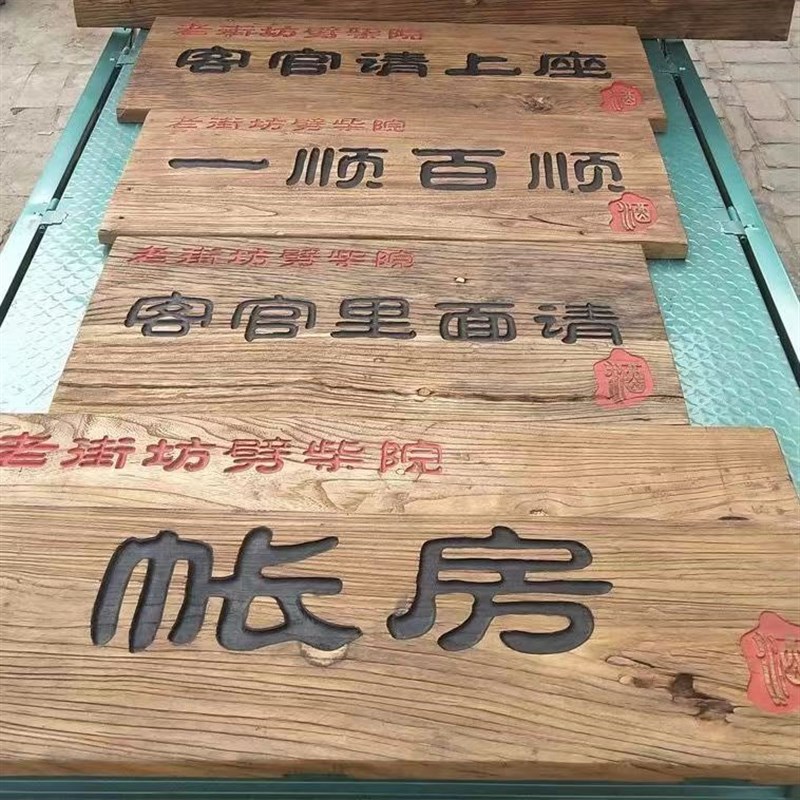 老街坊劈柴院
客官请上座
酒
老街坊劈柴院
一顺百顺
酒
老街坊劈柴院
客官里面请
酒
老街坊劈柴院
帐房
酒